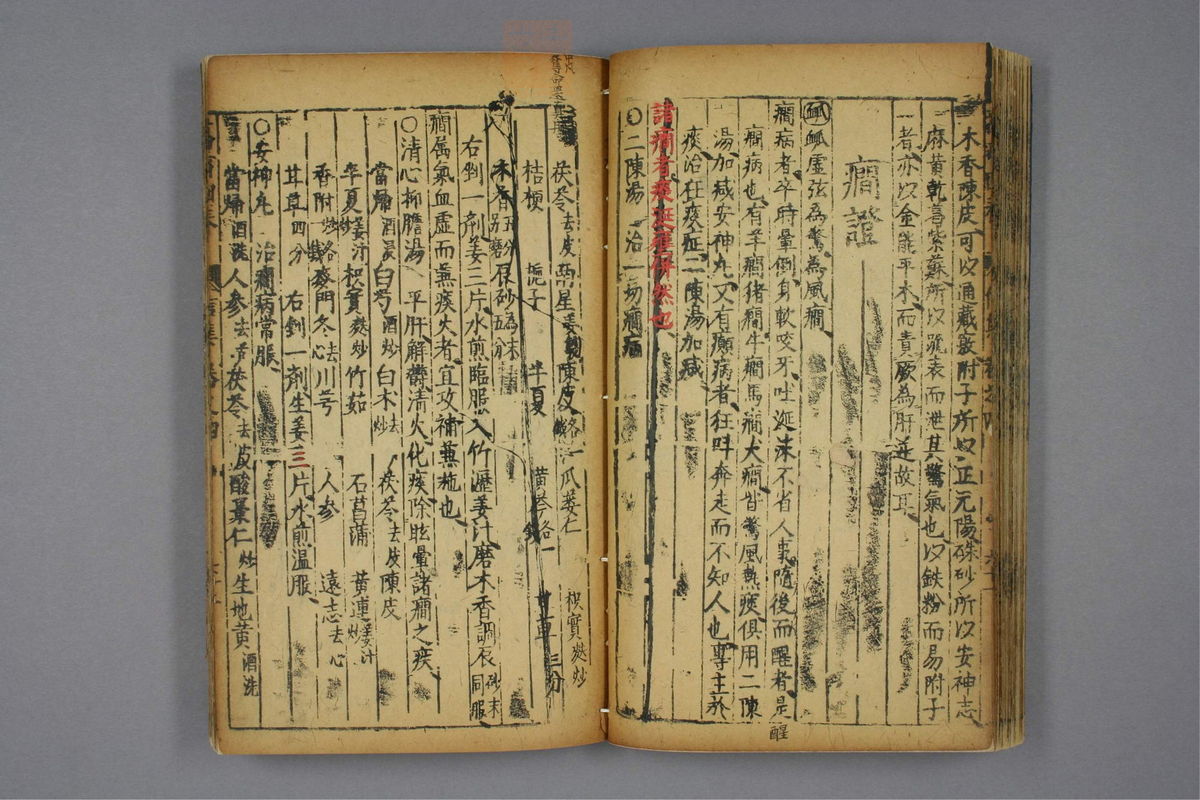 木香陳皮可以通藏發附子所以正元陽硃砂所以安神志
麻黃乾葛紫蘇所以疏表而泄其驚氣也以鉄粉而易附子
者亦以金能平木而責厥為肝逆故耳
癇證
脉虛弦為驚為風癇
癇病者卒時暈倒身軟咬牙吐涎沫不省人事隨後而醒者是
癇病也有羊癇猪癇牛癇馬癇犬癇皆驚風熱痰俱用二陳
湯加减安神丸又有癲病者狂呌奔走而不知人也專主於
痰治狂痰症二陳湯加减
諸癇者痰涎
然也
〇二陳湯 治一切癇病
茯苓去皮 南星姜製 陳皮 瓜蔞仁 枳實麸炒
桔梗 梔子 半夏 黃芩 甘草三分
木香五分別磨 辰砂為末五分
右剉一劑姜三片水煎臨服入竹瀝姜汁磨木香調辰砂末同服
癇属氣血虛而兼痰火者宜攻補兼施也
〇清心抑膽湯 平肝解欝清火化痰除眩暈諸癇之疾
當歸酒浸 白芍酒炒 白术去炒 茯苓去皮 陳皮
半夏姜汁炒 枳實麸炒 竹茹 石菖蒲 黃連姜汁炒
香附 麥門冬去心 川芎 人參 遠志去心
甘草四分 右剉一劑生姜三片水煎温服
〇安神丸 治癇病常服
當歸酒洗 人參去 茯苓去皮 酸棗仁炒 生地黃酒洗
醒